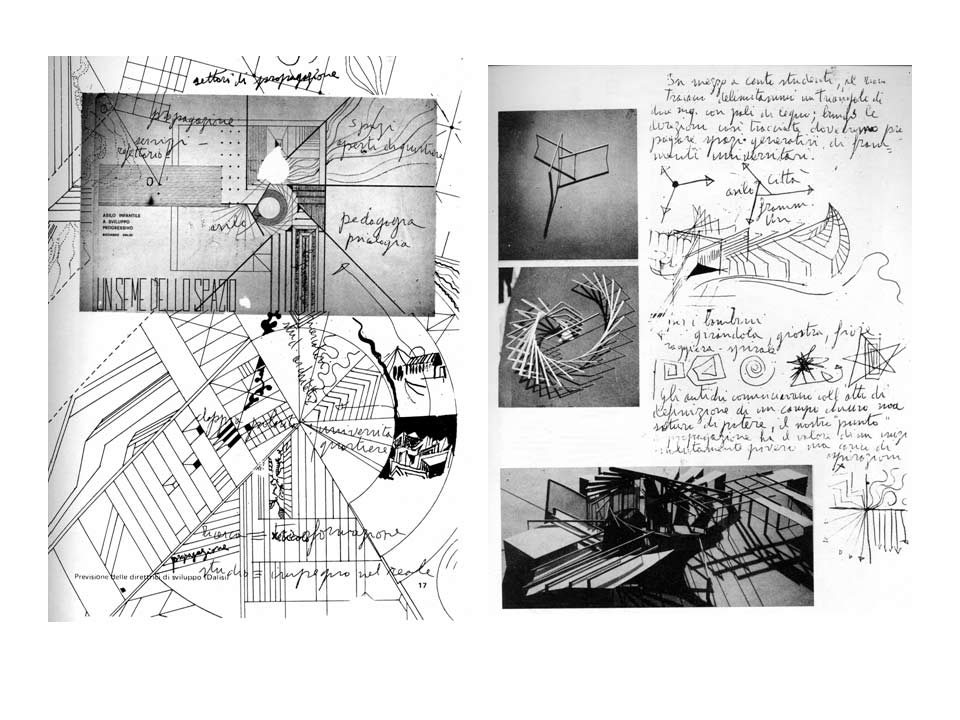 settori di propagazione
propagazione
servizi -
refettorio e
spazi
aperti di quartiere
ASILO INFANTILE
A SVILUPPO
PROGRESSIVO
RICCARDO DALISI
asilo
pedagogia
UN SEME DELLO SPAZIO
doppio
università
quartiere
ricerca = trasformazione
propagazione
studio = impegno nel reale
Previsione delle direttrici di sviluppo (Dalisi)
17
In mezzo a cento studenti, al
delimitammo un triangolo di
due mq. con pali di legno; lungo le
direzioni così tracciate dovevano pro
pagarsi spazi generativi, di fram=
menti universitari.
città
asilo
framm
un.
i bambini
girandola, giostra,
raggiera - spirale
Gli antichi cominciavano coll'atto di
definizione di un campo chiuso ma
saturo di potere, il nostro "punto"
propagazione ha il valore di un inizi
povero ma carico di